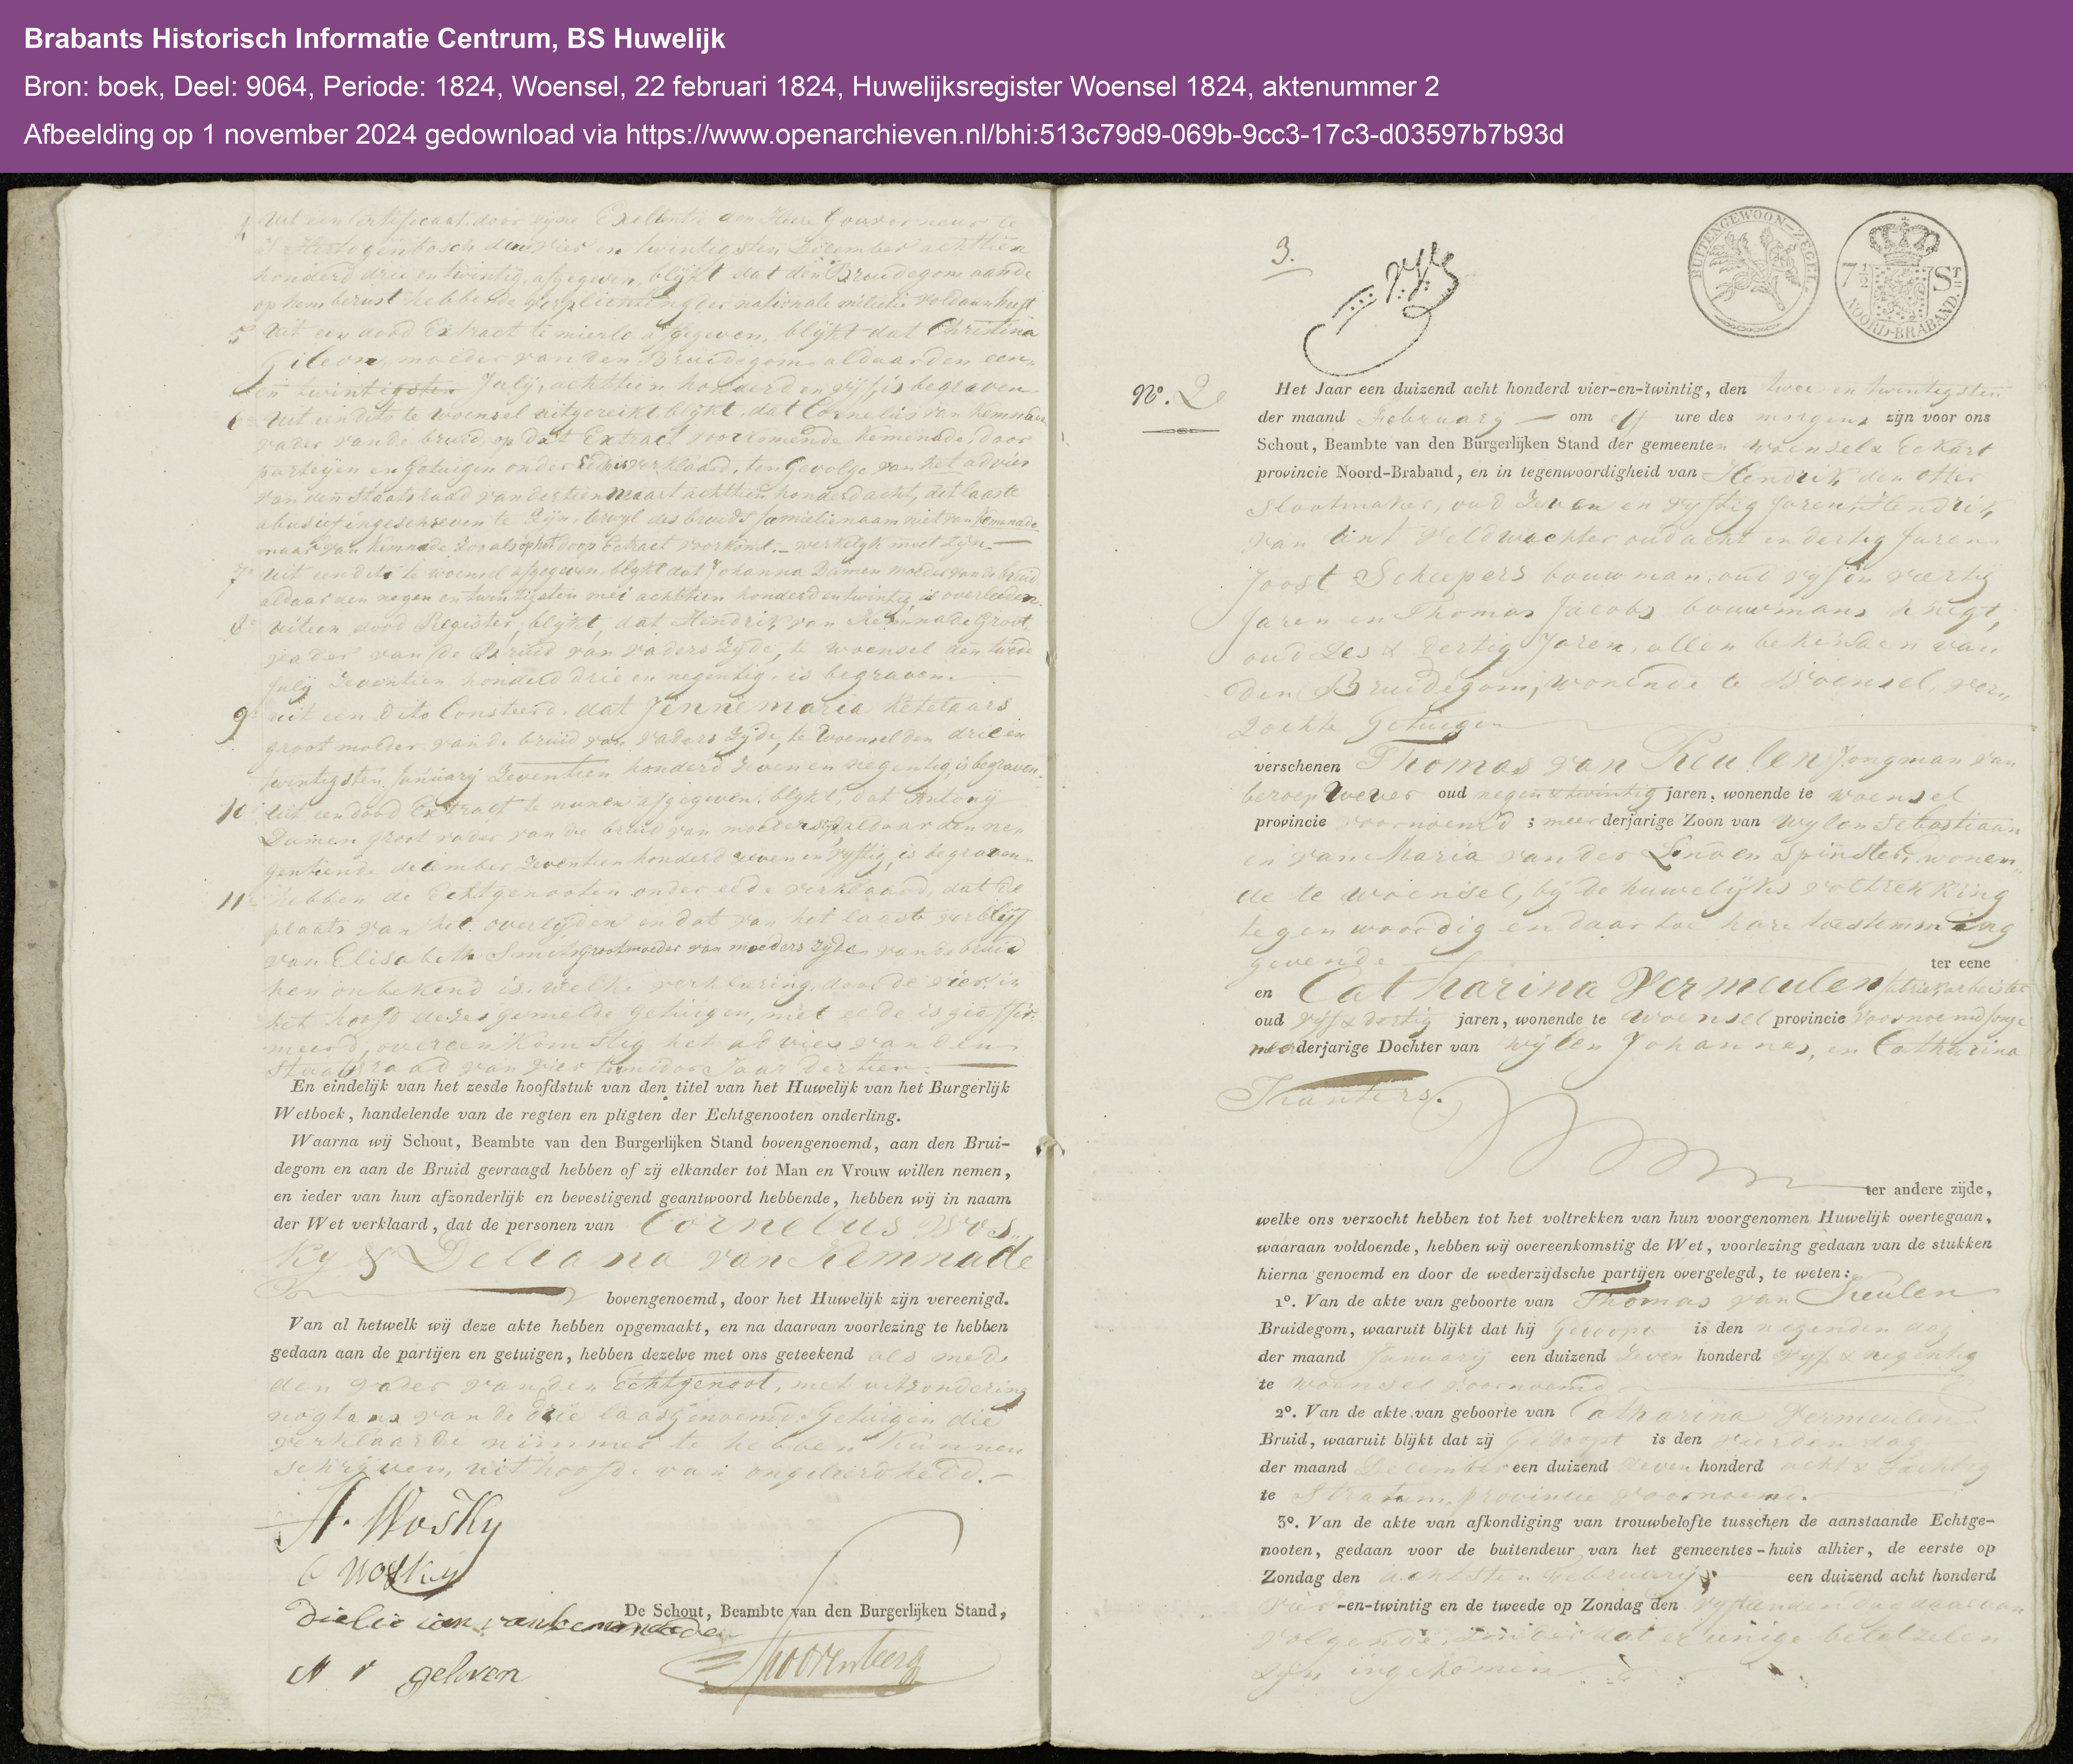 Brabants Historisch Informatie Centrum, BS Huwelijk
Bron: boek, Deel: 9064, Periode: 1824, Woensel, 22 februari 1824, Huwelijksregister Woensel 1824, aktenummer 2
Afbeelding op 1 november 2024 gedownload via https://www.openarchieven.nl/bhi:513c79d9-069b-9cc3-17c3-d03597b7b93d
4 Uit een Certificaat door zyne Exellentie den Heere Gouverneur te
S Hertogenbosch den vier en twintigsten December achttien
honderd drie en twintig, afgegeven, blykt dat den Bruidegom aan de
op hem berust hebbende verplichting der nationale militie voldaan heeft
5 Uit een dood Extract te mierlo afgegeven, blykt dat Christina
moeder van den Bruidegom aldaar den een
en twintigsten July, achttien honderd en vyf, is begraven
6 Uit een dito te woensel uitgereikt blykt, dat Cornelius van Kemnade
vader van de bruid op dat Extract voorkomende Kemenade, door
parteyen en Getuigen onder Eede is verklaard, ten gevolge van het advies
van den Staatsraad van dertien maart achttien honderd acht, dit laaste
abusief ingeschreven te zyn, terwyl des bruids familienaam niet van Kemenade
maar van Kemnade zoo als op het doop Extract voorkomt - werkelyk moet zyn.
7 Uit een dito te woensel afgegeven, blykt dat Johanna Damen moeder van de bruid
aldaar den negen en twintigsten mei achttien honderd en twintig, is overleden.
8 uit een dood Register, blykt, dat Hendrik van Kemnade Groot
vader van de Bruid van vaders zyde, te woensel den twede
July zeventien honderd drie en negentig, is begraven.
9 uit een dito Consteerd, dat Jennemaria Ketelaars
groot moeder van de bruid van vaders zyde, te woensel den drie en
twintigsten January zeventien honderd zeven en negentig, is begraven.
10 Uit een dood Extract te nunen afgegeven, blykt, dat Antony
Damen groot vader van de bruid van moeders zyde, aldaar den ne
gentiende december zeventien honderd zeven en vyftig, is begraven
11 hebben de Echtgenooten onder eede verklaard, dat de
plaats van het overlyden en dat van het laaste verblyf
van Elisabeth Smits Grootmoeder van moeders zyde van de bruid
hen onbekend is, welke verklaring door de vier, in
het hoofd dezes gemelde getuigen, met eede is geaffir
meerd, overeenkomstig het advies van den
Staatsraad van vier Jaar dertien.
En eindelijk van het zesde hoofdstuk van den titel van het Huwelijk van het Burgerlijk
Wetboek, handelende van de regten en pligten der Echtgenooten onderling.
Waarna wij Schout, Beambte van den Burgerlijken Stand bovengenoemd, aan den Brui-
degom en aan de Bruid gevraagd hebben of zij elkander tot Man en Vrouw willen nemen,
en ieder van hun afzonderlijk en bevestigend geantwoord hebbende, hebben wij in naam
der Wet verklaard, dat de personen van Cornelus Wos
Ky & Deliana van Kemnade
bovengenoemd, door het Huwelijk zijn vereenigd.
Van al hetwelk wij deze akte hebben opgemaakt, en na daarvan voorlezing te hebben
gedaan aan de partijen en getuigen, hebben dezelve met ons geteekend als mede
den vader van den Echtgenoot, met uitzondering
nogtans van de drie laasgenoemde Getuigen die
verklaarde nimmer te hebben kunnen
schryven, uit hoofde van ongeleerdheid.
H. Wosky
C Wosky
Dielie van kemnade
geloven
De Schout, Beambte van den Burgerlijken Stand,
3.
BUITENGEWOON-ZEGEL.
7 1/2 ST
NOORD-BRABAND.
No. 2
Het Jaar een duizend acht honderd vier-en-twintig, den twee en twintigsten
der maand February om elf ure des morgens zijn voor ons
Schout, Beambte van den Burgerlijken Stand der gemeenten woensel & Eckart
provincie Noord-Braband, en in tegenwoordigheid van Hendrik den otter
Slootmaker, oud zeven en vyftig Jaren, Hendrik
van Lint veldwachter oud acht en dertig Jaren.
Joost Scheepers bouwman, oud vyf en veertig
Jaren en Thomas Jacobs bouwmans knegt,
oud zes & dertig Jaren, allen bekenden van
den Bruidegom, wonende te Woensel, ver„
zochte Getuigen
verschenen Thomas van Keulen Jongman van
beroep Wever oud negen & twintig jaren, wonende te woensel
provincie voornoemd ; meerderjarige Zoon van wylen Sebastiaan
en van Maria van der Linden Spinster, wonen„
de te woensel, by de huwelijks voltrekking
tegenwoordig en daar toe hare toestemming
gevende ter eene
en Catharina Vermeulen fabriekarbeister
oud vyf & dertig jaren, wonende te Woensel provincie voornoemd Jonge
meerderjarige Dochter van wylen Johannes, en Catharina
ter andere zijde,
welke ons verzocht hebben tot het voltrekken van hun voorgenomen Huwelijk overtegaan,
waaraan voldoende, hebben wij overeenkomstig de Wet, voorlezing gedaan van de stukken
hierna genoemd en door de wederzijdsche partijen overgelegd, te weten:
1o. Van de akte van geboorte van Thomas van Keulen
Bruidegom, waaruit blijkt dat hij Gedoopt is den negenden dag
der maand January een duizend zeven honderd vyf & negentig
te woensel voornoemd
2o. Van de akte van geboorte van Catharina Vermeulen
Bruid, waaruit blijkt dat zij Gedoopt is den vierden dag
der maand December een duizend zeven honderd acht & tachtig
te Stratum, provincie voornoemd.
3o. Van de akte van afkondiging van trouwbelofte tusschen de aanstaande Echtge-
nooten, gedaan voor de buitendeur van het gemeentes-huis alhier, de eerste op
Zondag den achtsten February een duizend acht honderd
vier-en-twintig en de tweede op Zondag den vyftienden dag daar aan
volgende, zonder dat er eenige beletzelen
zyn ingekomen